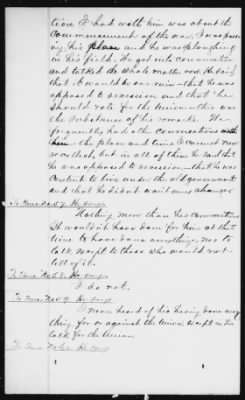 tion I had with him was about the
commencement of the war. I was pass
ing his place and he was ploughing
in his field. We got into conversation
and talked the whole matter over. He said
that it would be our ruin - that he was
opposed to secession and that he
should vote for the Union - this was
the substance of his remarks. We
frequently had other conversations with
him - the place and time I cannot now
recollect, but in all of them he said that
he was opposed to secession, - that he was
content to live under the old government
and that he didn't want any change
To Inter. No 57. He says
Nothing more than his conversation
It wouldn't have done for him at that
time to have done anything, nor to
talk except to those who would not
tell of it.
To Inter. No 58. He says
I do not.
To Inter. No 59. He says
I never heard of his having done any
thing for or against the Union except in his
talk for the Union
To Inter. No 60. He says